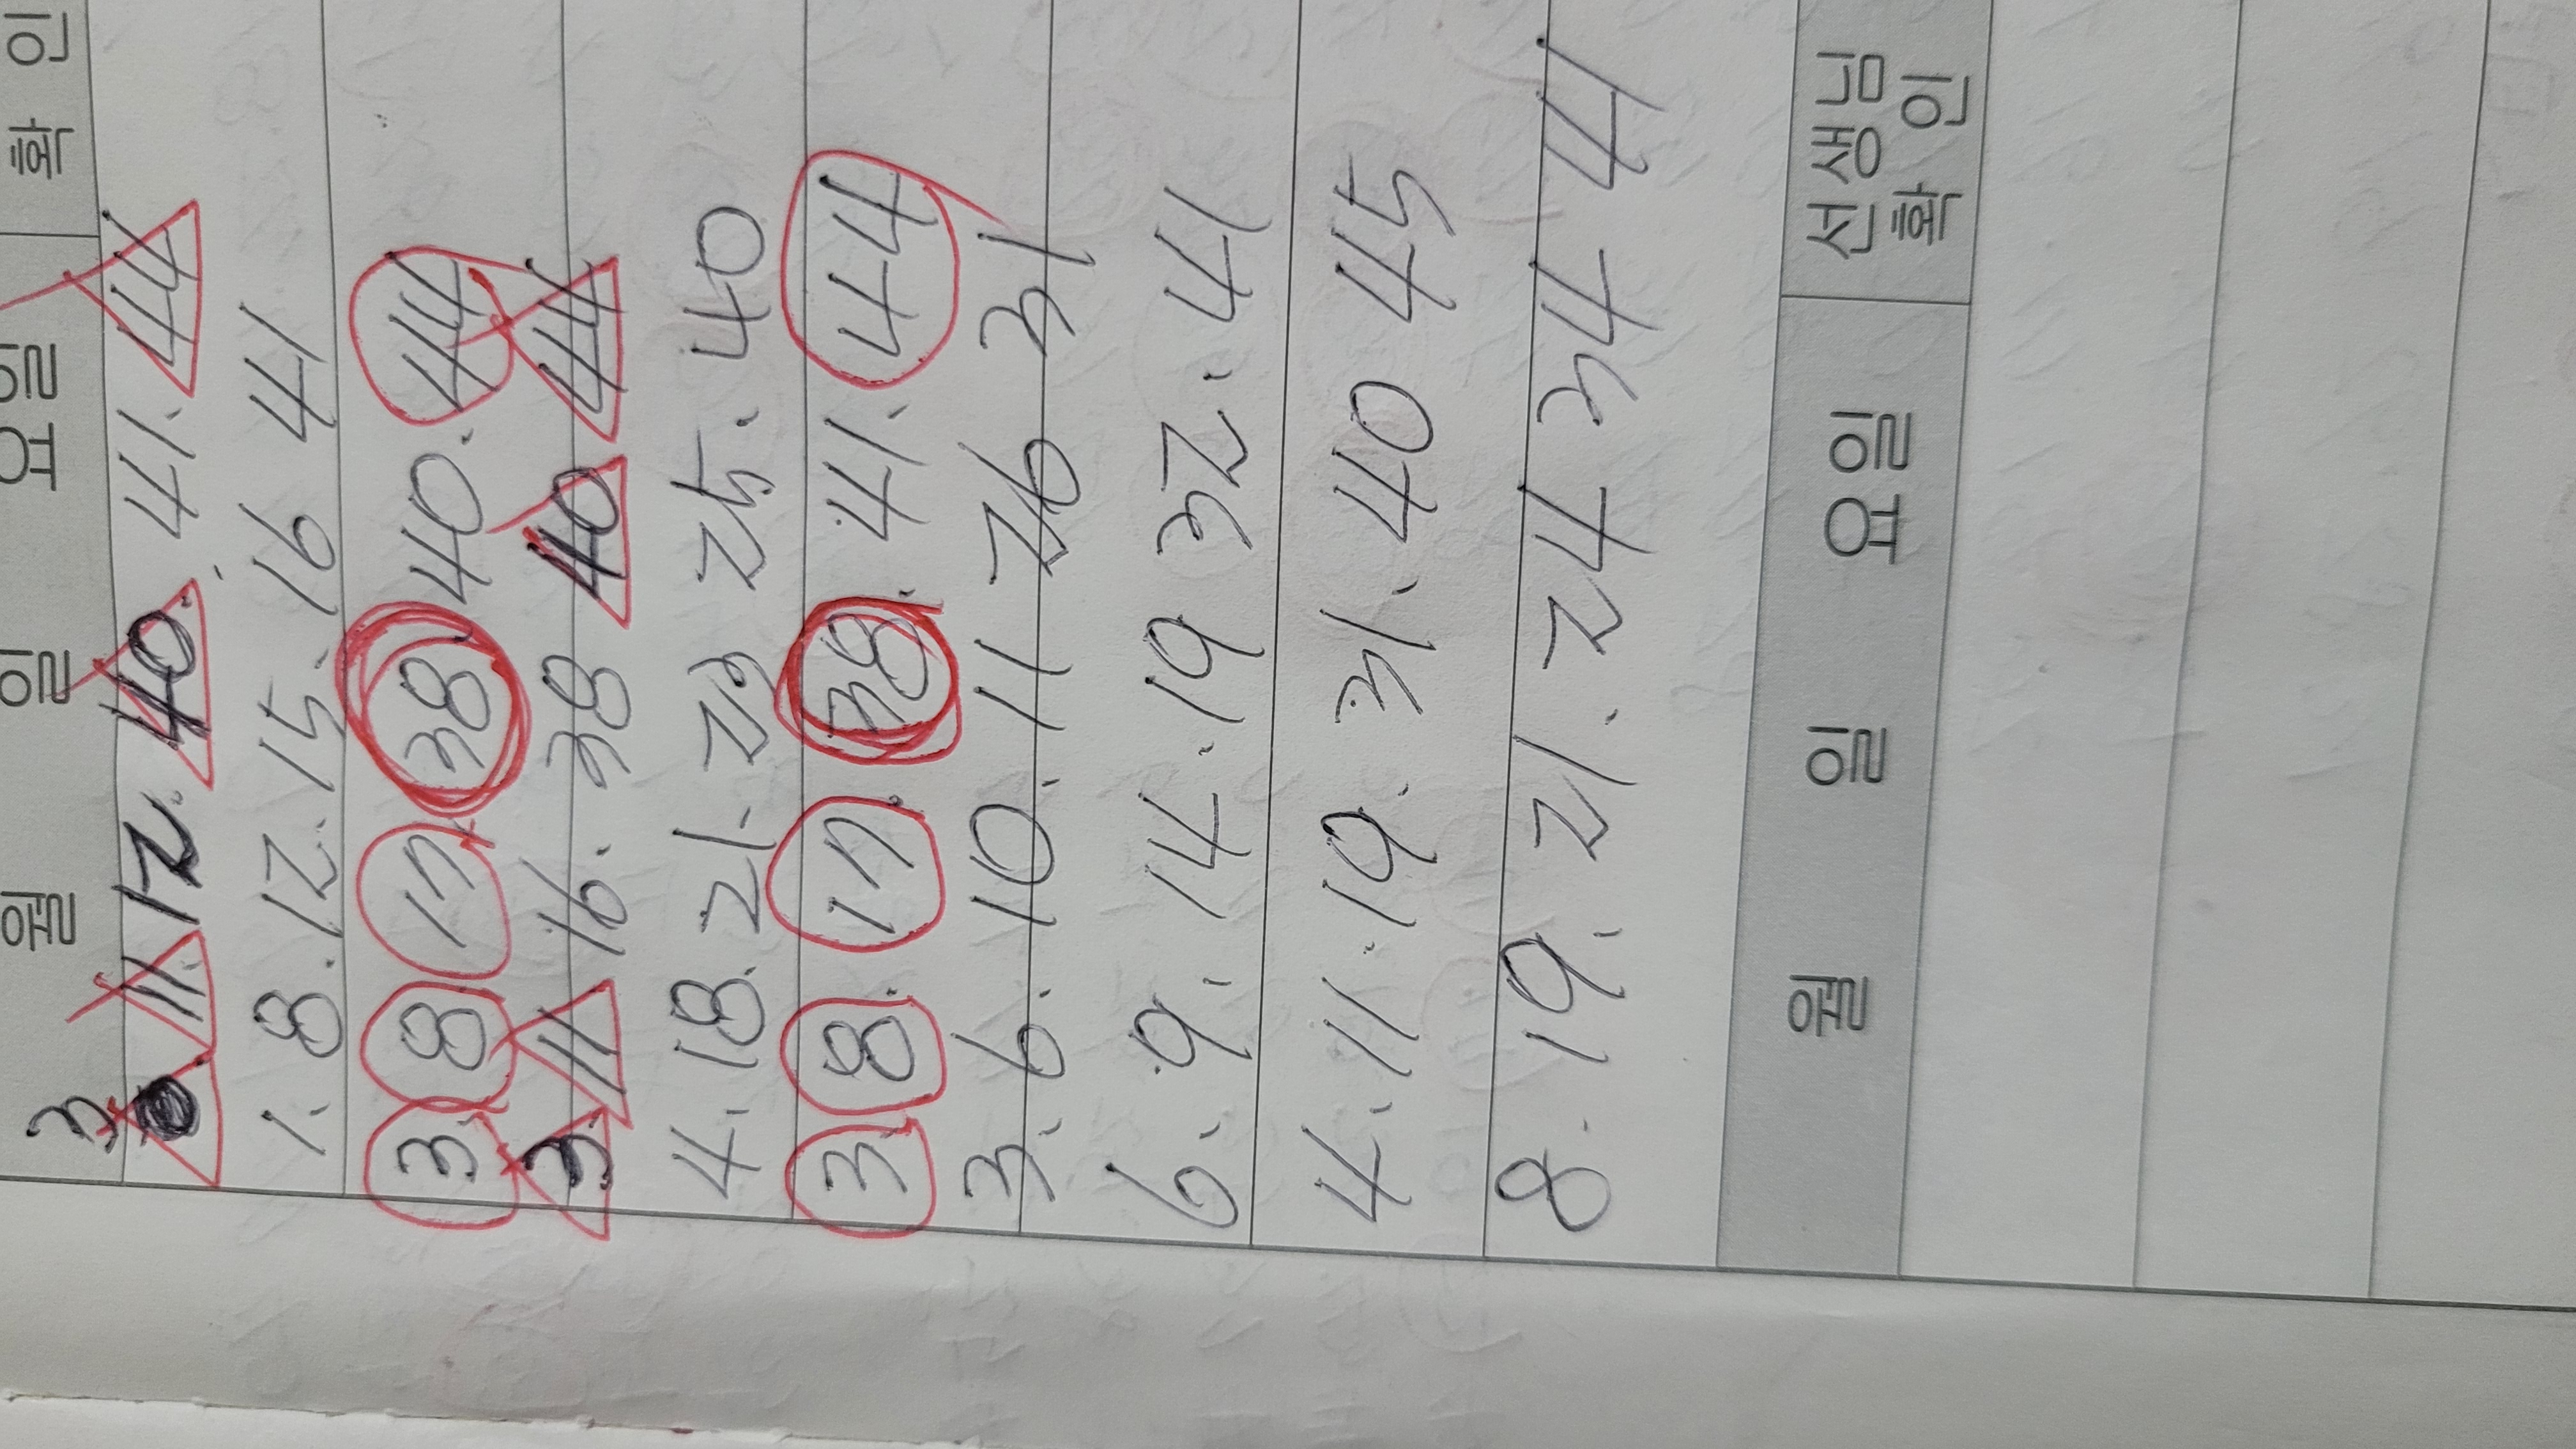 월 일 요일 확인
3
11. 12. 40. 41. 44
1. 8. 12. 15. 16 41
3. 8 17 38 40. 44
3. 11 16. 38 40 44
4. 18. 21. 29 25. 40
3. 8. 17. 38. 41. 44
3. 6. 10. 11 26 31
6. 9. 14. 19 32. 41
4. 11. 19. 31. 40 45
8. 19. 21. 24 34 41
월 일 요일 선생님 확인